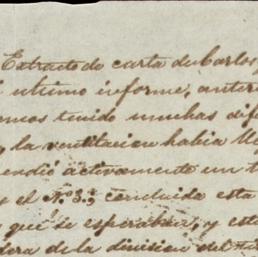 Extracto de carta de Carlos
ultimo informe, anter
emos tenido muchas dif
la ventilacion habia
endió activamente un t
y el Nº 3; concluida esta
que se esperaban, y est
dera de la division del